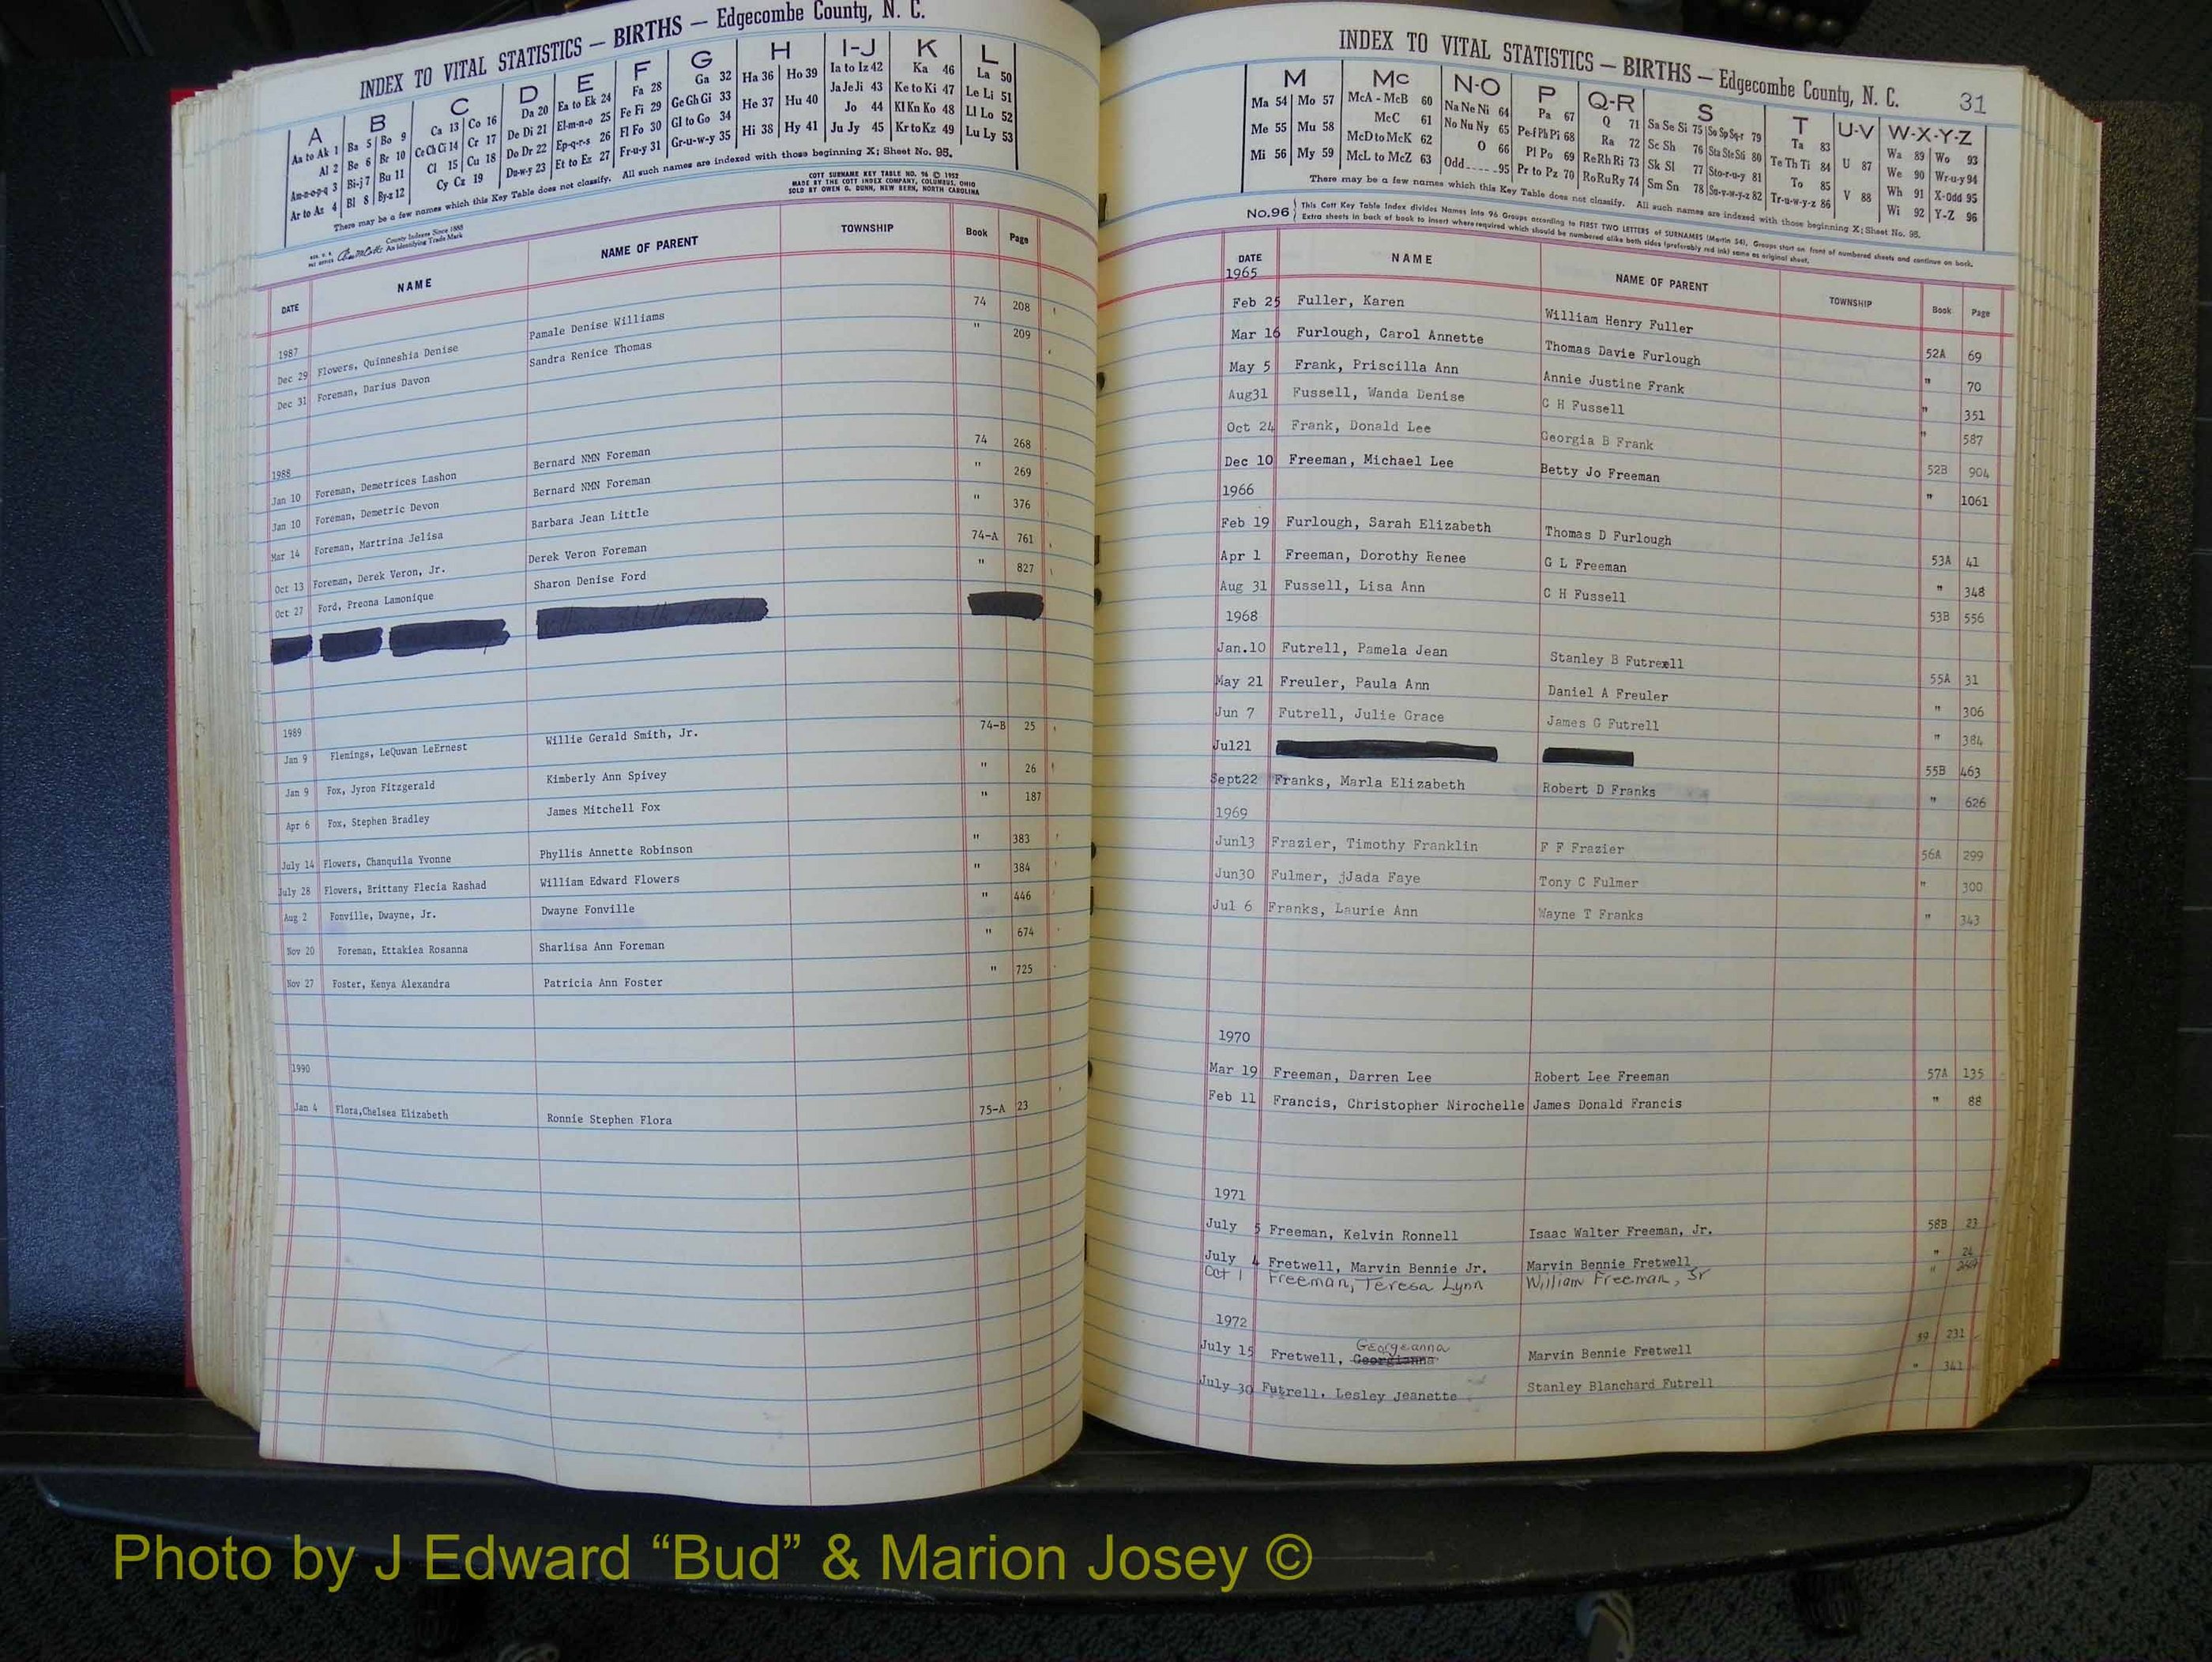 INDEX TO VITAL STATISTICS — BIRTHS — Edgecombe County, N. C.
A B C D E F G H I-J K L
Aa to Ak 1 Ba 5 Bo 9 Ca 13 Co 16 Da 20 Ea to Ek 24 Fa 28 Ga 32 Ha 36 Ho 39 Ia to Iz 42 Ka 46 La 50
Al 2 Be 6 Br 10 Ce Ch Ci 14 Cr 17 De Di 21 El-m-n-o 25 Fe Fi 29 Ge Gh Gi 33 He 37 Hu 40 Ja Je Ji 43 Ke to Ki 47 Le Li 51
Am-n-o-p-q 3 Bi-j 7 Bu 11 Cl 15 Cu 18 Do Dr 22 Ep-q-r-s 26 Fl Fo 30 Gl to Go 34 Hi 38 Hy 41 Jo 44 Kl Kn Ko 48 Ll Lo 52
Ar to Az 4 Bl 8 By-z 12 Cy Cz 19 Du-w-y 23 Et to Ez 27 Fr-u-y 31 Gr-u-w-y 35 Ju Jy 45 Kr to Kz 49 Lu Ly 53
There may be a few names which this Key Table does not classify. All such names are indexed with those beginning X; Sheet No. 95.
County Indexes Since 1888
An Identifying Trade Mark
COTT SURNAME KEY TABLE NO. 96 © 1952
MADE BY THE COTT INDEX COMPANY, COLUMBUS, OHIO
SOLD BY OWEN G. DUNN, NEW BERN, NORTH CAROLINA
DATE NAME NAME OF PARENT TOWNSHIP Book Page
1987
Dec 29 Flowers, Quinneshia Denise Pamale Denise Williams 74 208
Dec 31 Foreman, Darius Davon Sandra Renice Thomas " 209
1988
Jan 10 Foreman, Demetrices Lashon Bernard NMN Foreman 74 268
Jan 10 Foreman, Demetric Devon Bernard NMN Foreman " 269
Mar 14 Foreman, Martrina Jelisa Barbara Jean Little " 376
Oct 13 Foreman, Derek Veron, Jr. Derek Veron Foreman 74-A 761
Oct 27 Ford, Preona Lamonique Sharon Denise Ford " 827
1989
Jan 9 Flemings, LeQuwan LeErnest Willie Gerald Smith, Jr. 74-B 25
Jan 9 Fox, Jyron Fitzgerald Kimberly Ann Spivey " 26
Apr 6 Fox, Stephen Bradley James Mitchell Fox " 187
July 14 Flowers, Chanquila Yvonne Phyllis Annette Robinson " 383
July 28 Flowers, Brittany Flecia Rashad William Edward Flowers " 384
Aug 2 Fonville, Dwayne, Jr. Dwayne Fonville " 446
Nov 20 Foreman, Ettakiea Rosanna Sharlisa Ann Foreman " 674
Nov 27 Foster, Kenya Alexandra Patricia Ann Foster " 725
1990
Jan 4 Flora,Chelsea Elizabeth Ronnie Stephen Flora 75-A 23
INDEX TO VITAL STATISTICS — BIRTHS — Edgecombe County, N. C. 31
M Mc N-O P Q-R S T U-V W-X-Y-Z
Ma 54 Mo 57 McA - McB 60 Na Ne Ni 64 Pa 67 Q 71 Sa Se Si 75 So Sp Sq-r 79 Ta 83 Wa 89 Wo 93
Me 55 Mu 58 McC 61 No Nu Ny 65 Pe-f Ph Pi 68 Ra 72 Sc Sh 76 Sta Ste Sti 80 Te Th Ti 84 U 87 We 90 Wr-u-y 94
Mi 56 My 59 McD to McK 62 O 66 Pl Po 69 Re Rh Ri 73 Sk Sl 77 Sto-r-u-y 81 To 85 V 88 Wh 91 X-Odd 95
McL to McZ 63 Odd 95 Pr to Pz 70 Ro Ru Ry 74 Sm Sn 78 Su-v-w-y-z 82 Tr-u-w-y-z 86 Wi 92 Y-Z 96
There may be a few names which this Key Table does not classify. All such names are indexed with those beginning X; Sheet No. 95.
No.96 This Cott Key Table Index divides Names into 96 Groups according to FIRST TWO LETTERS of SURNAMES (Martin 54). Groups start on front of numbered sheets and continue on back.
Extra sheets in back of book to insert where required which should be numbered alike both sides (preferably red ink) same as original sheet.
DATE NAME NAME OF PARENT TOWNSHIP Book Page
1965
Feb 25 Fuller, Karen William Henry Fuller 52A 69
Mar 16 Furlough, Carol Annette Thomas Davie Furlough " 70
May 5 Frank, Priscilla Ann Annie Justine Frank " 351
Aug31 Fussell, Wanda Denise C H Fussell " 587
Oct 24 Frank, Donald Lee Georgia B Frank 52B 904
Dec 10 Freeman, Michael Lee Betty Jo Freeman " 1061
1966
Feb 19 Furlough, Sarah Elizabeth Thomas D Furlough 53A 41
Apr 1 Freeman, Dorothy Renee G L Freeman " 348
Aug 31 Fussell, Lisa Ann C H Fussell 53B 556
1968
Jan.10 Futrell, Pamela Jean Stanley B Futrell 55A 31
May 21 Freuler, Paula Ann Daniel A Freuler " 306
Jun 7 Futrell, Julie Grace James G Futrell " 384
Jul21 55B 463
Sept22 Franks, Marla Elizabeth Robert D Franks " 626
1969
Jun13 Frazier, Timothy Franklin F F Frazier 56A 299
Jun30 Fulmer, jJada Faye Tony C Fulmer " 300
Jul 6 Franks, Laurie Ann Wayne T Franks " 343
1970
Mar 19 Freeman, Darren Lee Robert Lee Freeman 57A 135
Feb 11 Francis, Christopher Nirochelle James Donald Francis " 88
1971
July 5 Freeman, Kelvin Ronnell Isaac Walter Freeman, Jr. 58B 23
July 4 Fretwell, Marvin Bennie Jr. Marvin Bennie Fretwell " 24
Oct 1 Freeman, Teresa Lynn William Freeman, Sr "
1972
Georgeanna
July 15 Fretwell, Georgianna Marvin Bennie Fretwell 59 231
July 30 Futrell, Lesley Jeanette Stanley Blanchard Futrell " 341
Photo by J Edward “Bud” & Marion Josey ©